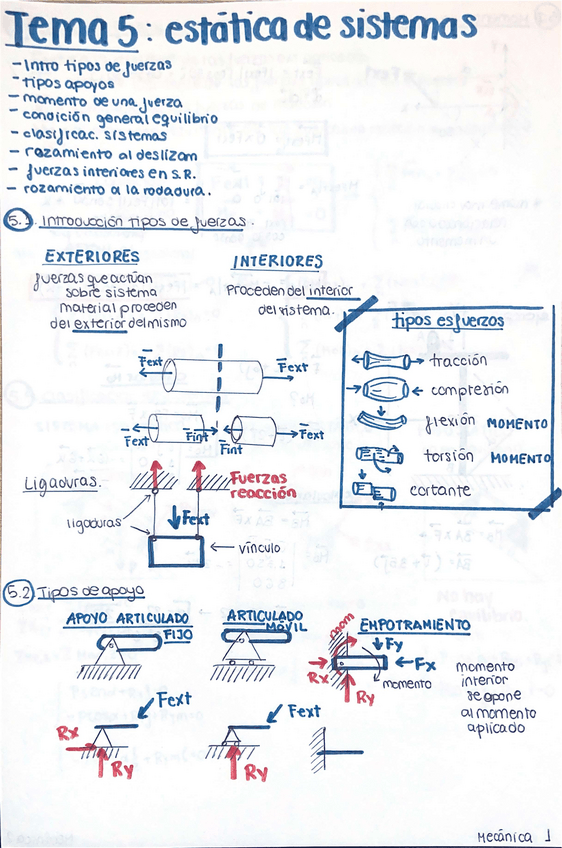 Tema 5: estática de sistemas
- Intro tipos de fuerzas
- tipos apoyos
- momento de una fuerza
- condición general equilibrio
- clasificac. sistemas
- rozamiento al deslizam
- fuerzas interiores en S.R.
- rozamiento a la rodadura.
5.1. Introducción tipos de fuerzas.
EXTERIORES
fuerzas que actúan
sobre sistema
material proceden
del exterior del mismo
INTERIORES
Proceden del interior
del sistema.
Fext
Fext
Fext
Fint
Fint
Fext
tipos esfuerzos
tracción
compresión
flexión MOMENTO
torsión MOMENTO
cortante
Ligaduras.
Fuerzas
reacción
ligaduras
Fext
vínculo
5.2 Tipos de apoyo
APOYO ARTICULADO
FIJO
ARTICULADO
MÓVIL
EMPOTRAMIENTO
Mom
Fy
Fx
Rx
Ry
momento
momento
interior
se opone
al momento
aplicado
Fext
Rx
Ry
Fext
Ry
Mecánica 1